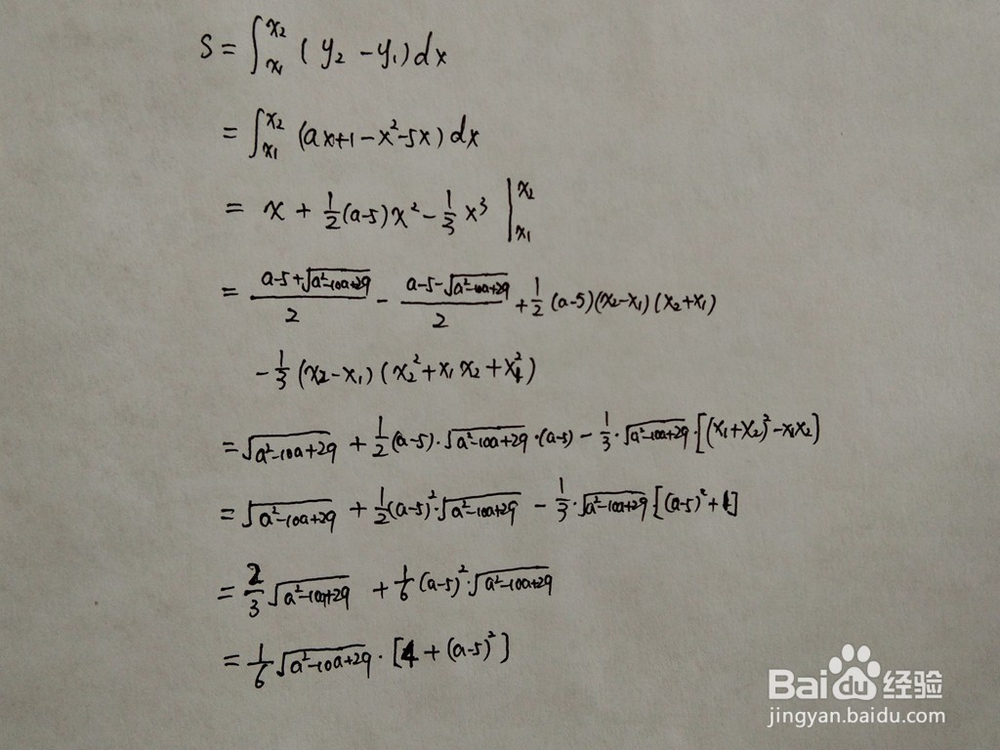 S = ∫_{x₁}^{x₂} (y₂ - y₁) dx
= ∫_{x₁}^{x₂} (ax+1-x²-5x) dx
= x + 1/2 (a-5) x² - 1/3 x³ |_{x₁}^{x₂}
= (a-5+√(a²-10a+29))/2 - (a-5-√(a²-10a+29))/2 + 1/2 (a-5)(x₂-x₁)(x₂+x₁)
- 1/3 (x₂-x₁)(x₂²+x₁x₂+x₁²)
= √(a²-10a+29) + 1/2 (a-5)·√(a²-10a+29)·(a-5) - 1/3·√(a²-10a+29)·[(x₁+x₂)²-x₁x₂]
= √(a²-10a+29) + 1/2 (a-5)²·√(a²-10a+29) - 1/3·√(a²-10a+29)·[(a-5)²+1]
= 2/3 √(a²-10a+29) + 1/6 (a-5)²·√(a²-10a+29)
= 1/6 √(a²-10a+29)·[4+(a-5)²]
Baidu经验
jingyan.baidu.com